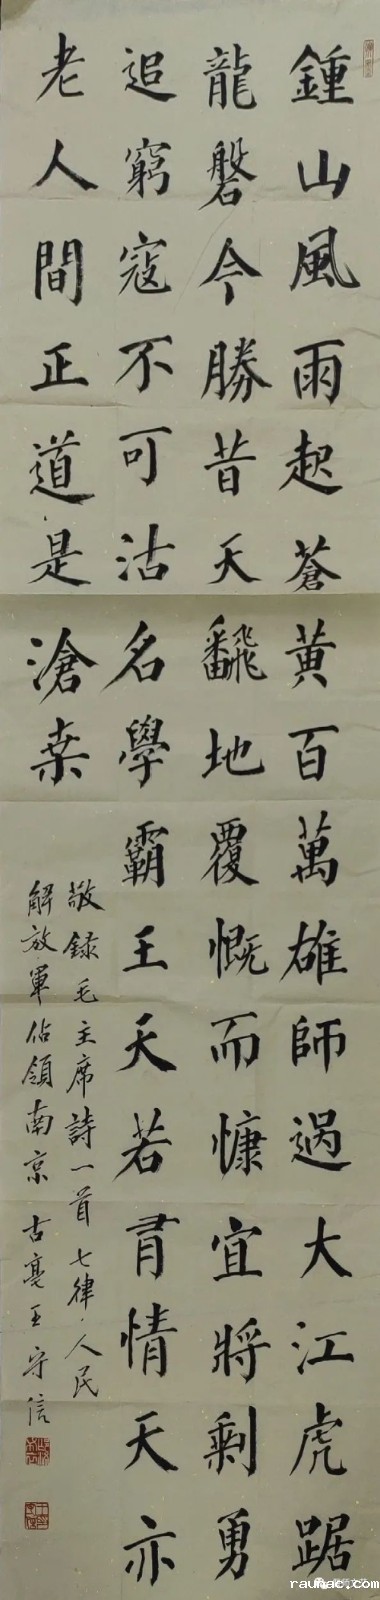 鍾山風雨起蒼黃百萬雄師過大江虎踞
龍磐今勝昔天飜地覆慨而慷宜將剩勇
追窮寇不可沽名學霸王天若有情天亦
老人間正道是滄桒
敬錄毛主席詩一首七律·人民
解放軍佔領南京 古亳王守信
raunac.com